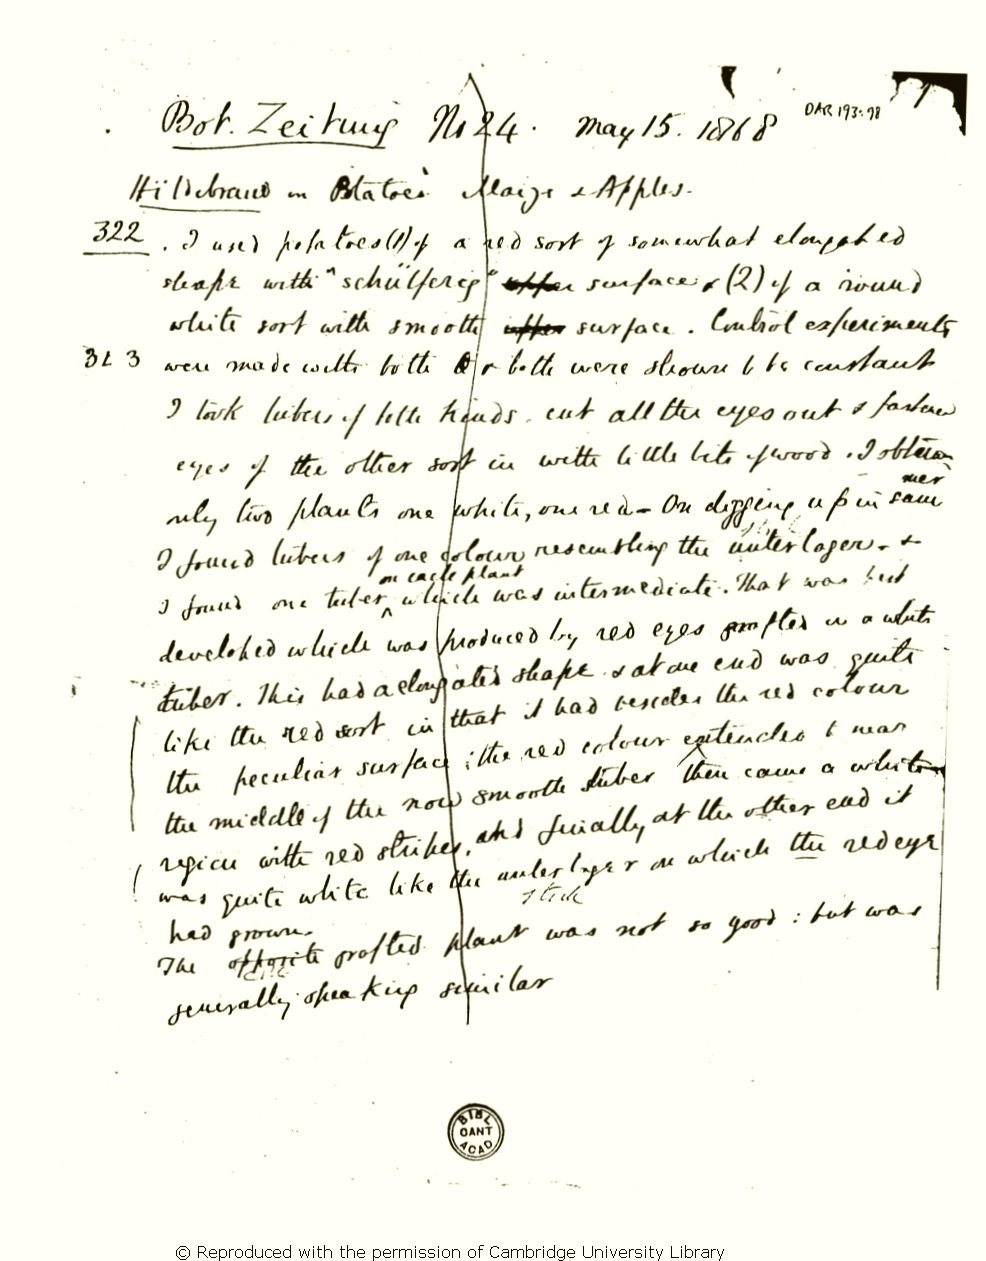 Bot. Zeitung No 24. May 15. 1868
DAR 193:98
Hildebrand on Potatoes Maize & Apples.
322. I used potatoes (1) of a red sort of somewhat elongated
shape with "schülferig" upper surface & (2) of a round
white sort with smooth upper surface. Control experiments
323 were made with both & both were shown to be constant
I took tubers of both kinds. cut all the eyes out & fastened
eyes of the other sort in with little bits of wood. I obtain
only two plants one white, one red — On digging up in sum
mer
I found tubers of one colour resembling the unterlager. &
on each plant
I found one tuber which was intermediate. That was best
developed which was produced by red eyes grafted in a white
tuber. This had a elongated shape & at one end was quite
like the red sort in that it had besides the red colour
the peculiar surface; the red colour extended to near
the middle of the now smooth tuber then came a white
region with red stripes, and finally at the other end it
was quite white like the unterlager on which the red eye
stock
had grown.
The opposite grafted plant was not so good: but was
generally speaking similar
BIBL
CANT
ACAD
© Reproduced with the permission of Cambridge University Library